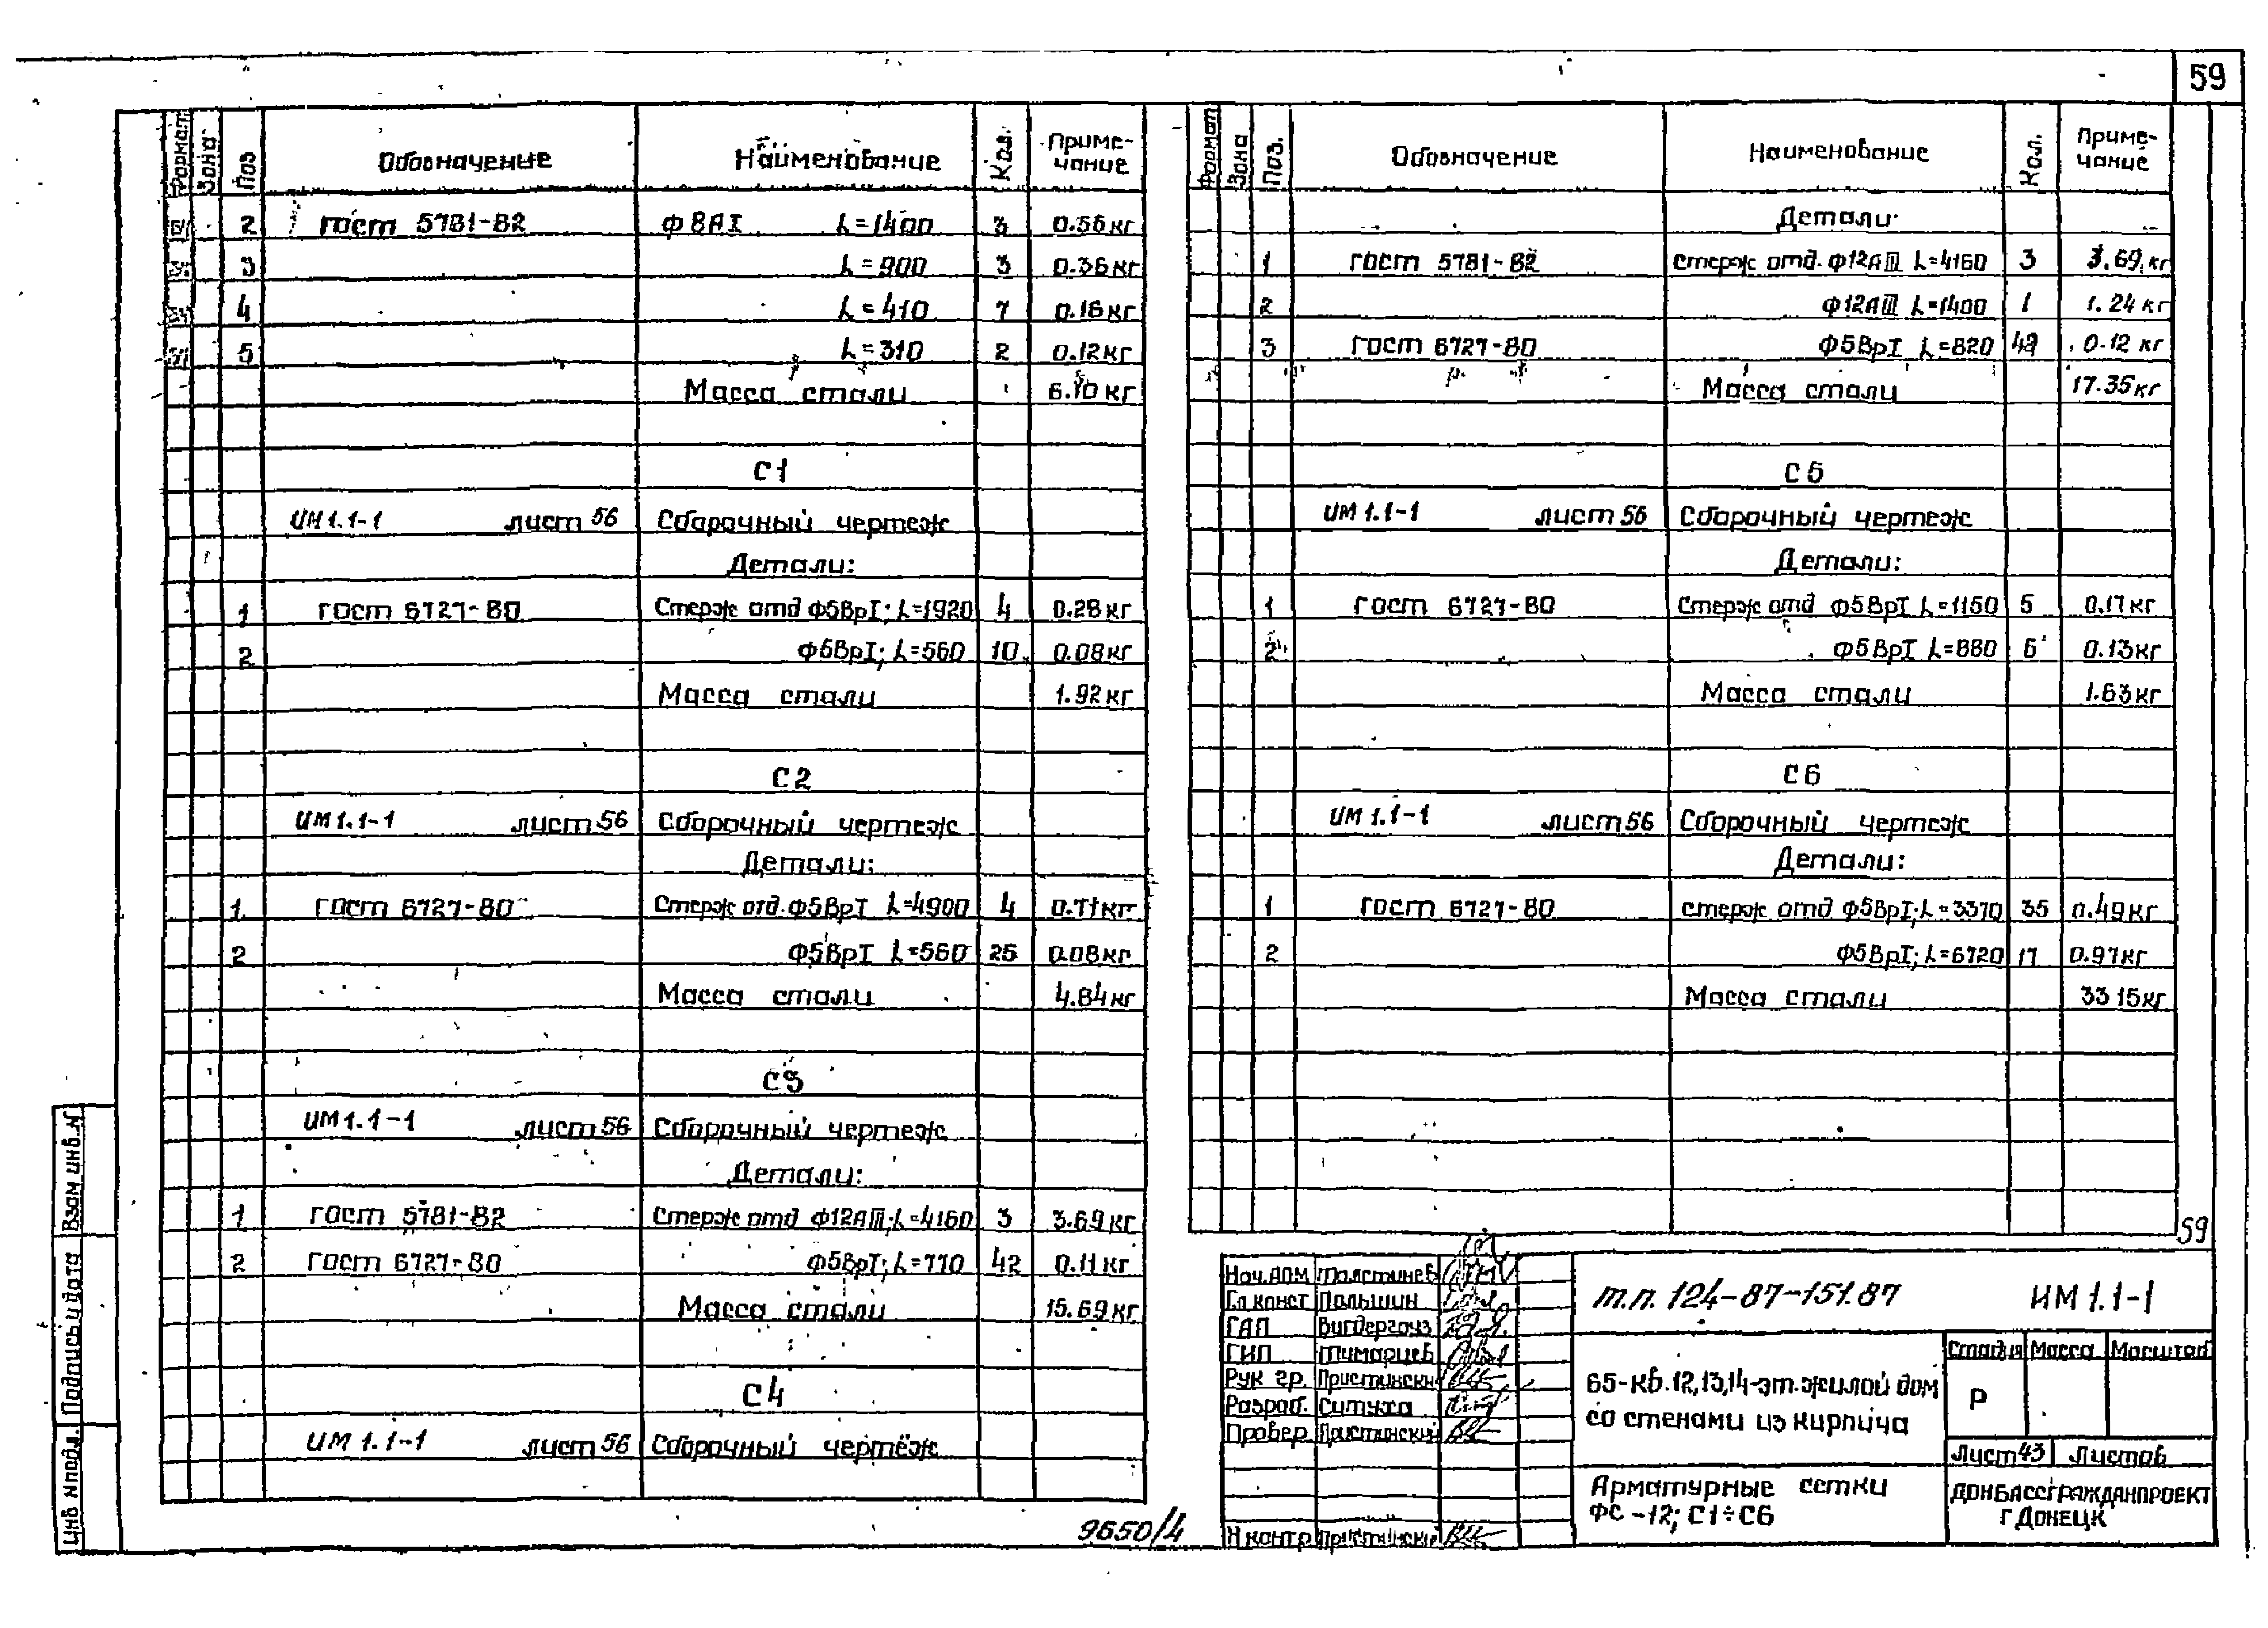 59
Формат Зона Поз Обозначение Наименование Кол. Приме-чание
2 ГОСТ 5781-82 ф8АI L=1400 3 0.56кг
3 L=900 3 0.36кг
4 L=410 7 0.16кг
5 L=310 2 0.12кг
Масса стали 6.10кг
С1
ИМ1.1-1 лист 56 Сборочный чертеж
Детали:
1 ГОСТ 6727-80 Стерж отд ф5ВрI; L=1920 4 0.28кг
2 ф5ВрI; L=560 10 0.08кг
Масса стали 1.92кг
С2
ИМ1.1-1 лист 56 Сборочный чертеж
Детали:
1 ГОСТ 6727-80 Стерж отд. ф5ВрI L=4900 4 0.71кг
2 ф5ВрI L=560 25 0.08кг
Масса стали 4.84кг
С3
ИМ1.1-1 лист 56 Сборочный чертеж
Детали:
1 ГОСТ 5781-82 Стерж отд ф12АIII; L=4160 3 3.69кг
2 ГОСТ 6727-80 ф5ВрI; L=770 42 0.11кг
Масса стали 15.69кг
С4
ИМ 1.1-1 лист 56 Сборочный чертёж
Формат Зона Поз. Обозначение Наименование Кол. Приме-чание
Детали:
1 ГОСТ 5781-82 Стерж отд. ф12АIII L=4160 3 3.69кг
2 ф12АIII L=1400 1 1.24кг
3 ГОСТ 6727-80 ф5ВрI L=820 42 0.12кг
Масса стали 17.35кг
С5
ИМ1.1-1 лист 56 Сборочный чертеж
Детали:
1 ГОСТ 6727-80 Стерж отд ф5ВрI L=1150 5 0.17кг
2 ф5ВрI L=880 6 0.13кг
Масса стали 1.63кг
С6
ИМ1.1-1 лист 56 Сборочный чертеж
Детали:
1 ГОСТ 6727-80 стерж отд ф5ВрI; L=3370 35 0.49кг
2 ф5ВрI; L=6720 17 0.97кг
Масса стали 33 15кг
59
Нач. АПМ Толстинев
Гл конст Паньшин
ГАП Вигдергауз
ГИП Тимарцев
Рук гр. Пристински
Разраб. Ситуха
Провер Пристински
Н контр Пристински
т.п. 124-87-151.87 ИМ 1.1-1
65-кв.12,13,14-эт.жилой дом
со стенами из кирпича
Стадия Масса Масштаб
Р
Лист 43 Листов
Арматурные сетки
ФС-12; С1÷С6
ДОНБАССГРАЖДАНПРОЕКТ
Г ДОНЕЦК
Взам инв. N
Подпись и дата
Инв N подл.
9650/4